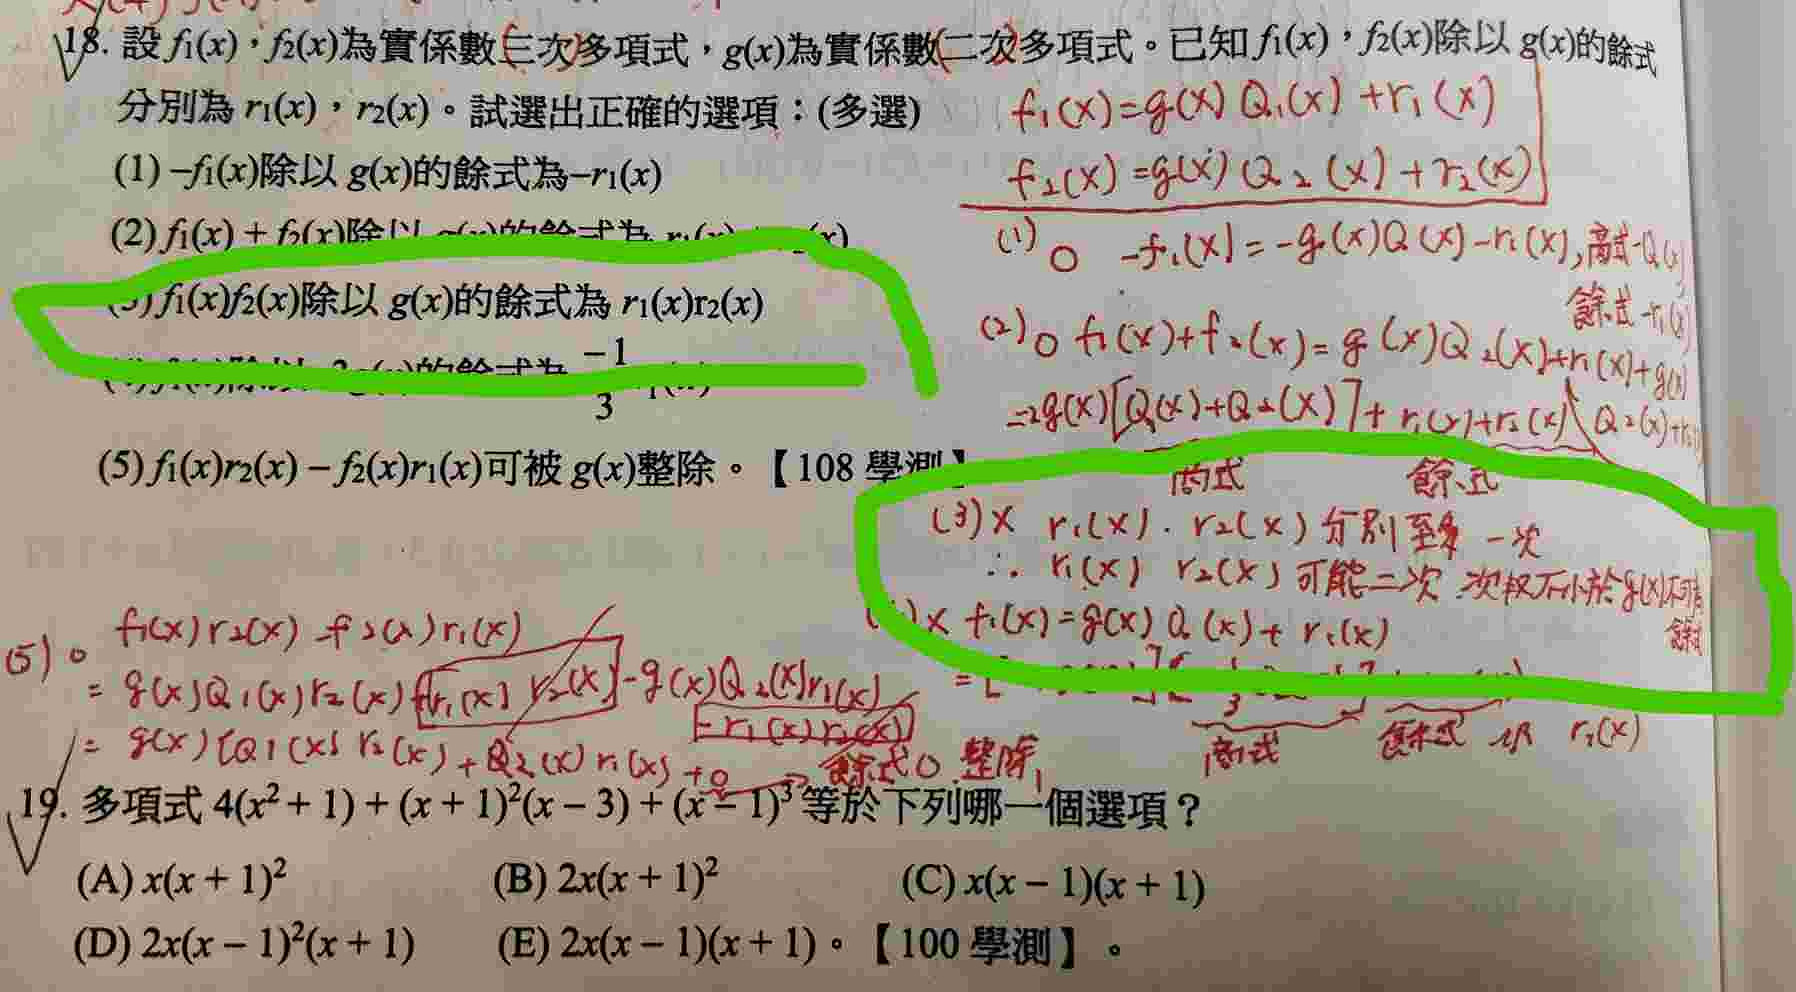 18. 設 f₁(x)，f₂(x)為實係數三次多項式，g(x)為實係數二次多項式。已知 f₁(x)，f₂(x)除以 g(x)的餘式
分別為 r₁(x)，r₂(x)。試選出正確的選項：(多選)
(1) –f₁(x)除以 g(x)的餘式為–r₁(x)
(2) f₁(x) + f₂(x)除以 g(x)的餘式為
(3) f₁(x)f₂(x)除以 g(x)的餘式為 r₁(x)r₂(x)
的餘式為 -1/3
(5) f₁(x)r₂(x) – f₂(x)r₁(x)可被 g(x)整除。【108 學測】
f₁(x)=g(x) Q₁(x) +r₁(x)
f₂(x)=g(x) Q₂(x)+r₂(x)
(1) ○ -f₁(x)=-g(x)Q(x)-r₁(x),商式-Q(x)
餘式-r₁(x)
(2) ○ f₁(x)+f₂(x)=g(x)Q₂(x)+r₁(x)+g(x)
=g(x)[Q(x)+Q₂(x)]+r₁(x)+r₂(x) Q₂(x)+r₂
商式 餘式
(3) × r₁(x)．r₂(x)分別至多一次
∴ r₁(x) r₂(x)可能二次 次校不小於g(x)不可為
餘式
× f₁(x)=g(x) Q(x)+ r₁(x)
商式 餘式 r₁(x)
(5) ○ f₁(x)r₂(x)-f₂(x)r₁(x)
= g(x)Q₁(x)r₂(x)+r₁(x)r₂(x)-g(x)Q₂(x)r₁(x)
-r₁(x)r₂(x)
= g(x)[Q₁(x) r₂(x)+Q₂(x)r₁(x)+0 → 餘式0 整除
19. 多項式 4(x² + 1) + (x + 1)²(x – 3) + (x – 1)³ 等於下列哪一個選項？
(A) x(x + 1)² (B) 2x(x + 1)² (C) x(x – 1)(x + 1)
(D) 2x(x – 1)²(x + 1) (E) 2x(x – 1)(x + 1)。【100 學測】。